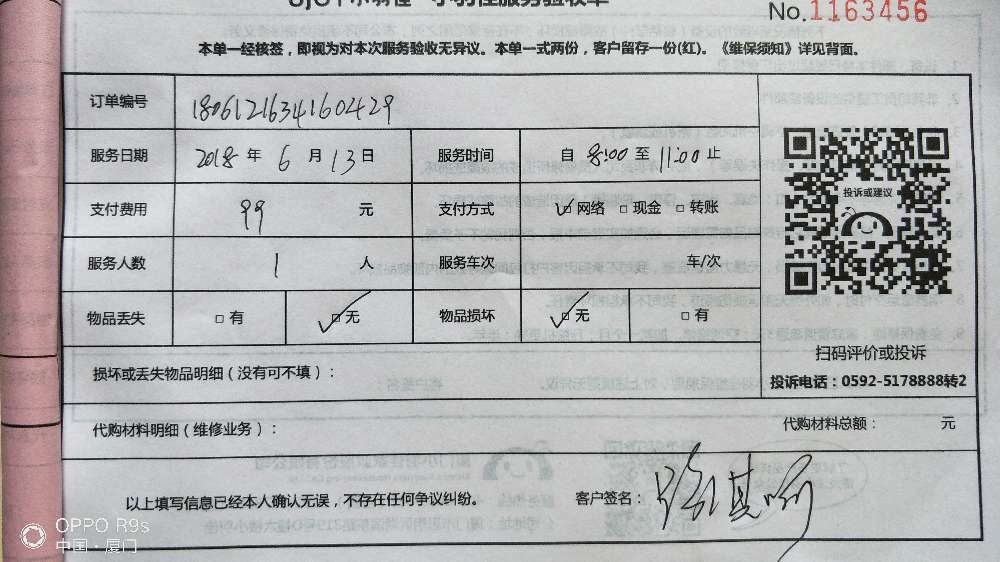 No.1163456
本单一经核签，即视为对本次服务验收无异议。本单一式两份，客户留存一份(红)。《维保须知》详见背面。
订单编号 1806121634160429
服务日期 2018 年 6 月 13 日 服务时间 自 8:00 至 11:00 止
支付费用 99 元 支付方式 ☑ 网络 □ 现金 □ 转账
服务人数 1 人 服务车次 车/次
物品丢失 □ 有 ☑ 无 物品损坏 ☑ 无 □ 有
投诉或建议
扫码评价或投诉
投诉电话：0592-5178888转2
损坏或丢失物品明细（没有可不填）：
代购材料明细（维修业务）： 代购材料总额： 元
以上填写信息已经本人确认无误，不存在任何争议纠纷。 客户签名：
OPPO R9s
中国·厦门